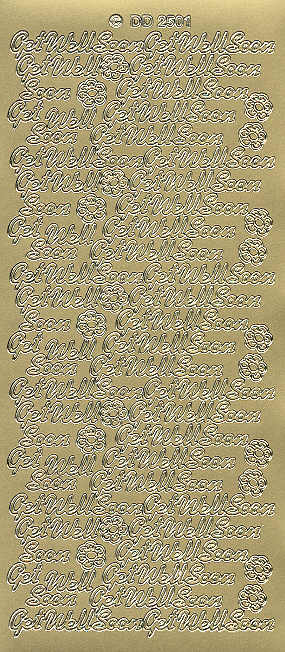 DD 2501
Get Well Soon Get Well Soon
Get Well Get Well Soon
Soon Get Well Soon
Get Well Get Well Soon
Soon Get Well Soon
Get Well Soon Get Well Soon
Get Well Get Well Soon
Soon Get Well Soon
Get Well Get Well Soon
Soon Get Well Soon
Get Well Soon Get Well Soon
Get Well Get Well Soon
Soon Get Well Soon
Get Well Get Well Soon
Soon Get Well Soon
Get Well Soon Get Well Soon
Get Well Get Well Soon
Soon Get Well Soon
Get Well Get Well Soon
Soon Get Well Soon
Get Well Soon Get Well Soon
Get Well Get Well Soon
Soon Get Well Soon
Get Well Get Well Soon
Soon Get Well Soon
Get Well Soon Get Well Soon